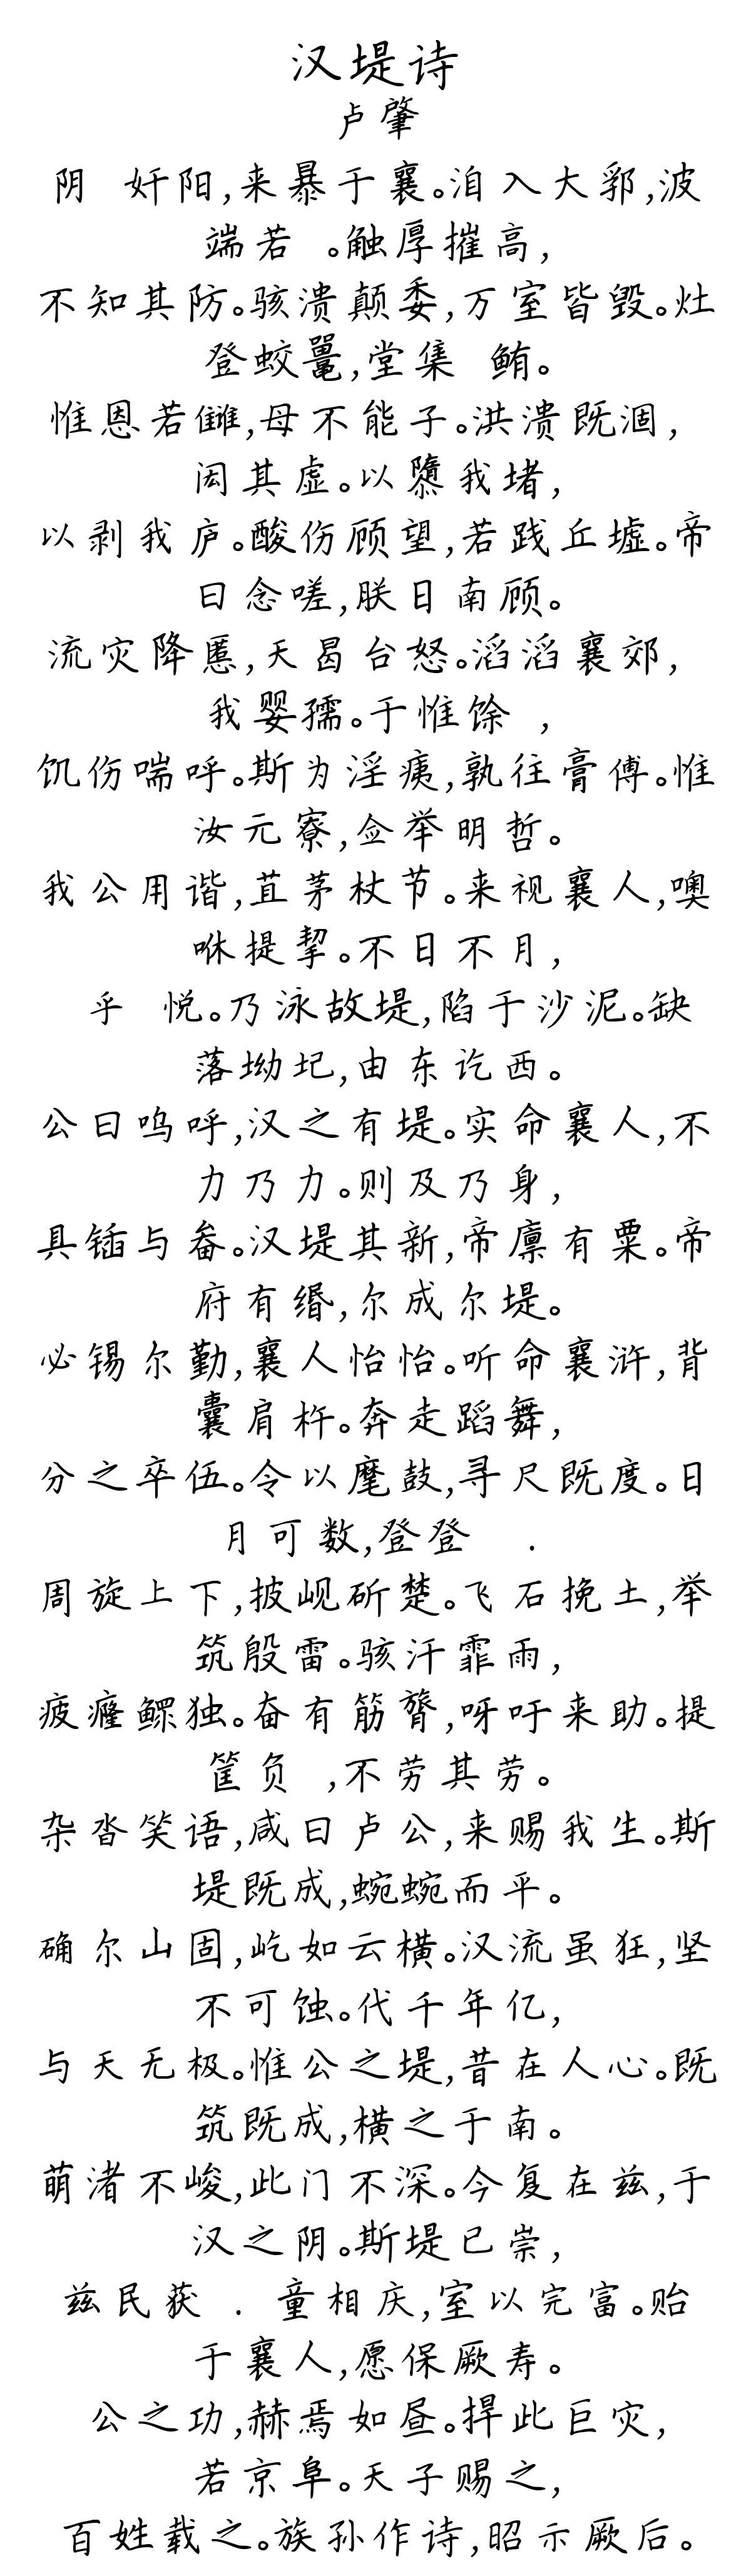 汉堤诗
卢肇
阴 奸阳,来暴于襄。洎入大郛,波
端若 。触厚摧高,
不知其防。骇溃颠委,万室皆毁。灶
登蛟鼍,堂集 鲔。
惟恩若雠,母不能子。洪溃既涸,
闳其虚。以隳我堵,
以剥我庐。酸伤顾望,若践丘墟。帝
曰念嗟,朕日南顾。
流灾降慝,天曷台怒。滔滔襄郊,
我婴孺。于惟馀 ,
饥伤喘呼。斯为淫痍,孰往膏傅。惟
汝元寮,佥举明哲。
我公用谐,苴茅杖节。来视襄人,噢
咻提挈。不日不月,
乎 悦。乃泳故堤,陷于沙泥。缺
落坳圮,由东讫西。
公曰呜呼,汉之有堤。实命襄人,不
力乃力。则及乃身,
具锸与畚。汉堤其新,帝廪有粟。帝
府有缗,尔成尔堤。
必锡尔勤,襄人怡怡。听命襄浒,背
囊肩杵。奔走蹈舞,
分之卒伍。令以麾鼓,寻尺既度。日
月可数,登登 .
周旋上下,披岘斫楚。飞石挽土,举
筑殷雷。骇汗霏雨,
疲癃鳏独。奋有筋膂,呀吁来助。提
筐负 ,不劳其劳。
杂沓笑语,咸曰卢公,来赐我生。斯
堤既成,蜿蜿而平。
确尔山固,屹如云横。汉流虽狂,坚
不可蚀。代千年亿,
与天无极。惟公之堤,昔在人心。既
筑既成,横之于南。
萌渚不峻,此门不深。今复在兹,于
汉之阴。斯堤已崇,
兹民获 . 童相庆,室以完富。贻
于襄人,愿保厥寿。
公之功,赫焉如昼。捍此巨灾,
若京阜。天子赐之,
百姓载之。族孙作诗,昭示厥后。